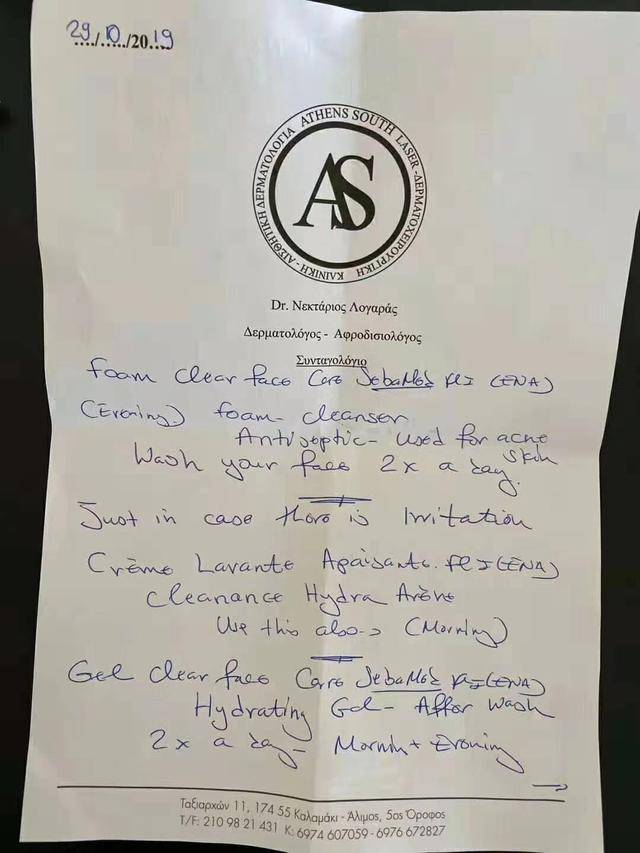 29/10/2019
ATHENS SOUTH LASER - ΔΕΡΜΑΤΟΧΕΙΡΟΥΡΓΙΚΗ ΚΛΙΝΙΚΗ - ΑΙΣΘΗΤΙΚΗ ΔΕΡΜΑΤΟΛΟΓΙΑ
AS
Dr. Νεκτάριος Λογαράς
Δερματολόγος - Αφροδισιολόγος
Συνταγολόγιο
Foam clear face Care SebaMed FL I (ENA)
(Evening) foam - cleanser
Antiseptic - used for acne
skin
Wash your face 2x a day.
Just in case there is Irritation
Crème Lavante Apaisante. FL I (ENA)
Cleanance Hydra Avène
Use this also → (Morning)
Gel clear face Care SebaMed FL I (ENA)
Hydrating Gel - After Wash
2x a day - Mornin + Evening
→
Ταξιαρχών 11, 174 55 Καλαμάκι - Άλιμος, 5ος Όροφος
T/F: 210 98 21 431 K: 6974 607059 - 6976 672827